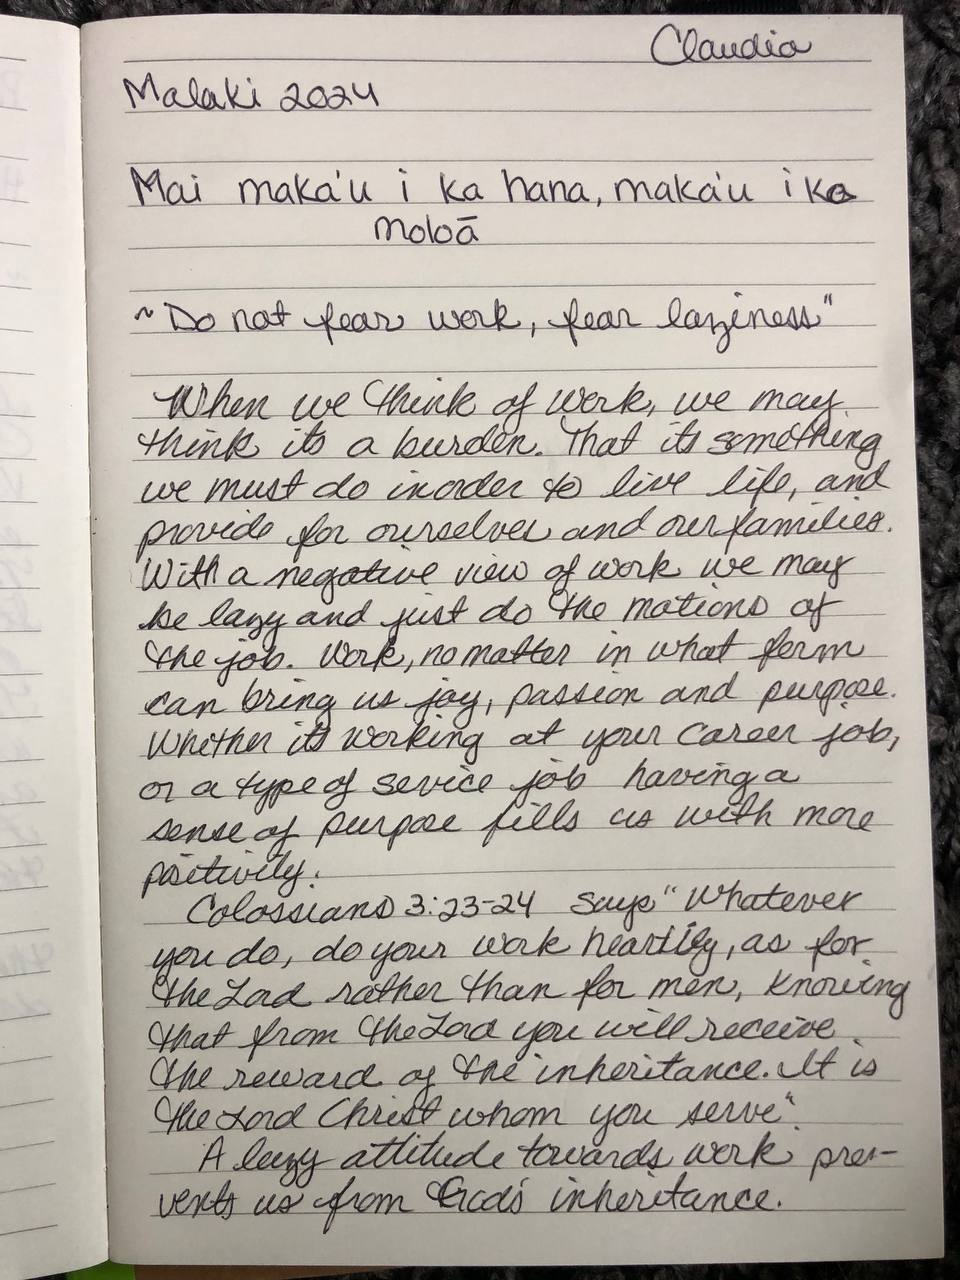 Claudia
Malaki 2024
Mai maka'u i ka hana, maka'u i ka
moloā
~"Do not fear work, fear laziness"
When we think of work, we may
think its a burden. That its something
we must do inorder to live life, and
provide for ourselves and our families.
With a negative view of work we may
be lazy and just do the motions of
the job. Work, no matter in what form
can bring us joy, passion and purpose.
Whether its working at your career job,
or a type of sevice job having a
sense of purpose fills us with more
positivity.
Colossians 3:23-24 says "Whatever
you do, do your work heartily, as for
the Lord rather than for men, knowing
that from the Lord you will receive
the reward of the inheritance. It is
the Lord Christ whom you serve".
A lazy attitude towards work pre-
vents us from God's inheritance.